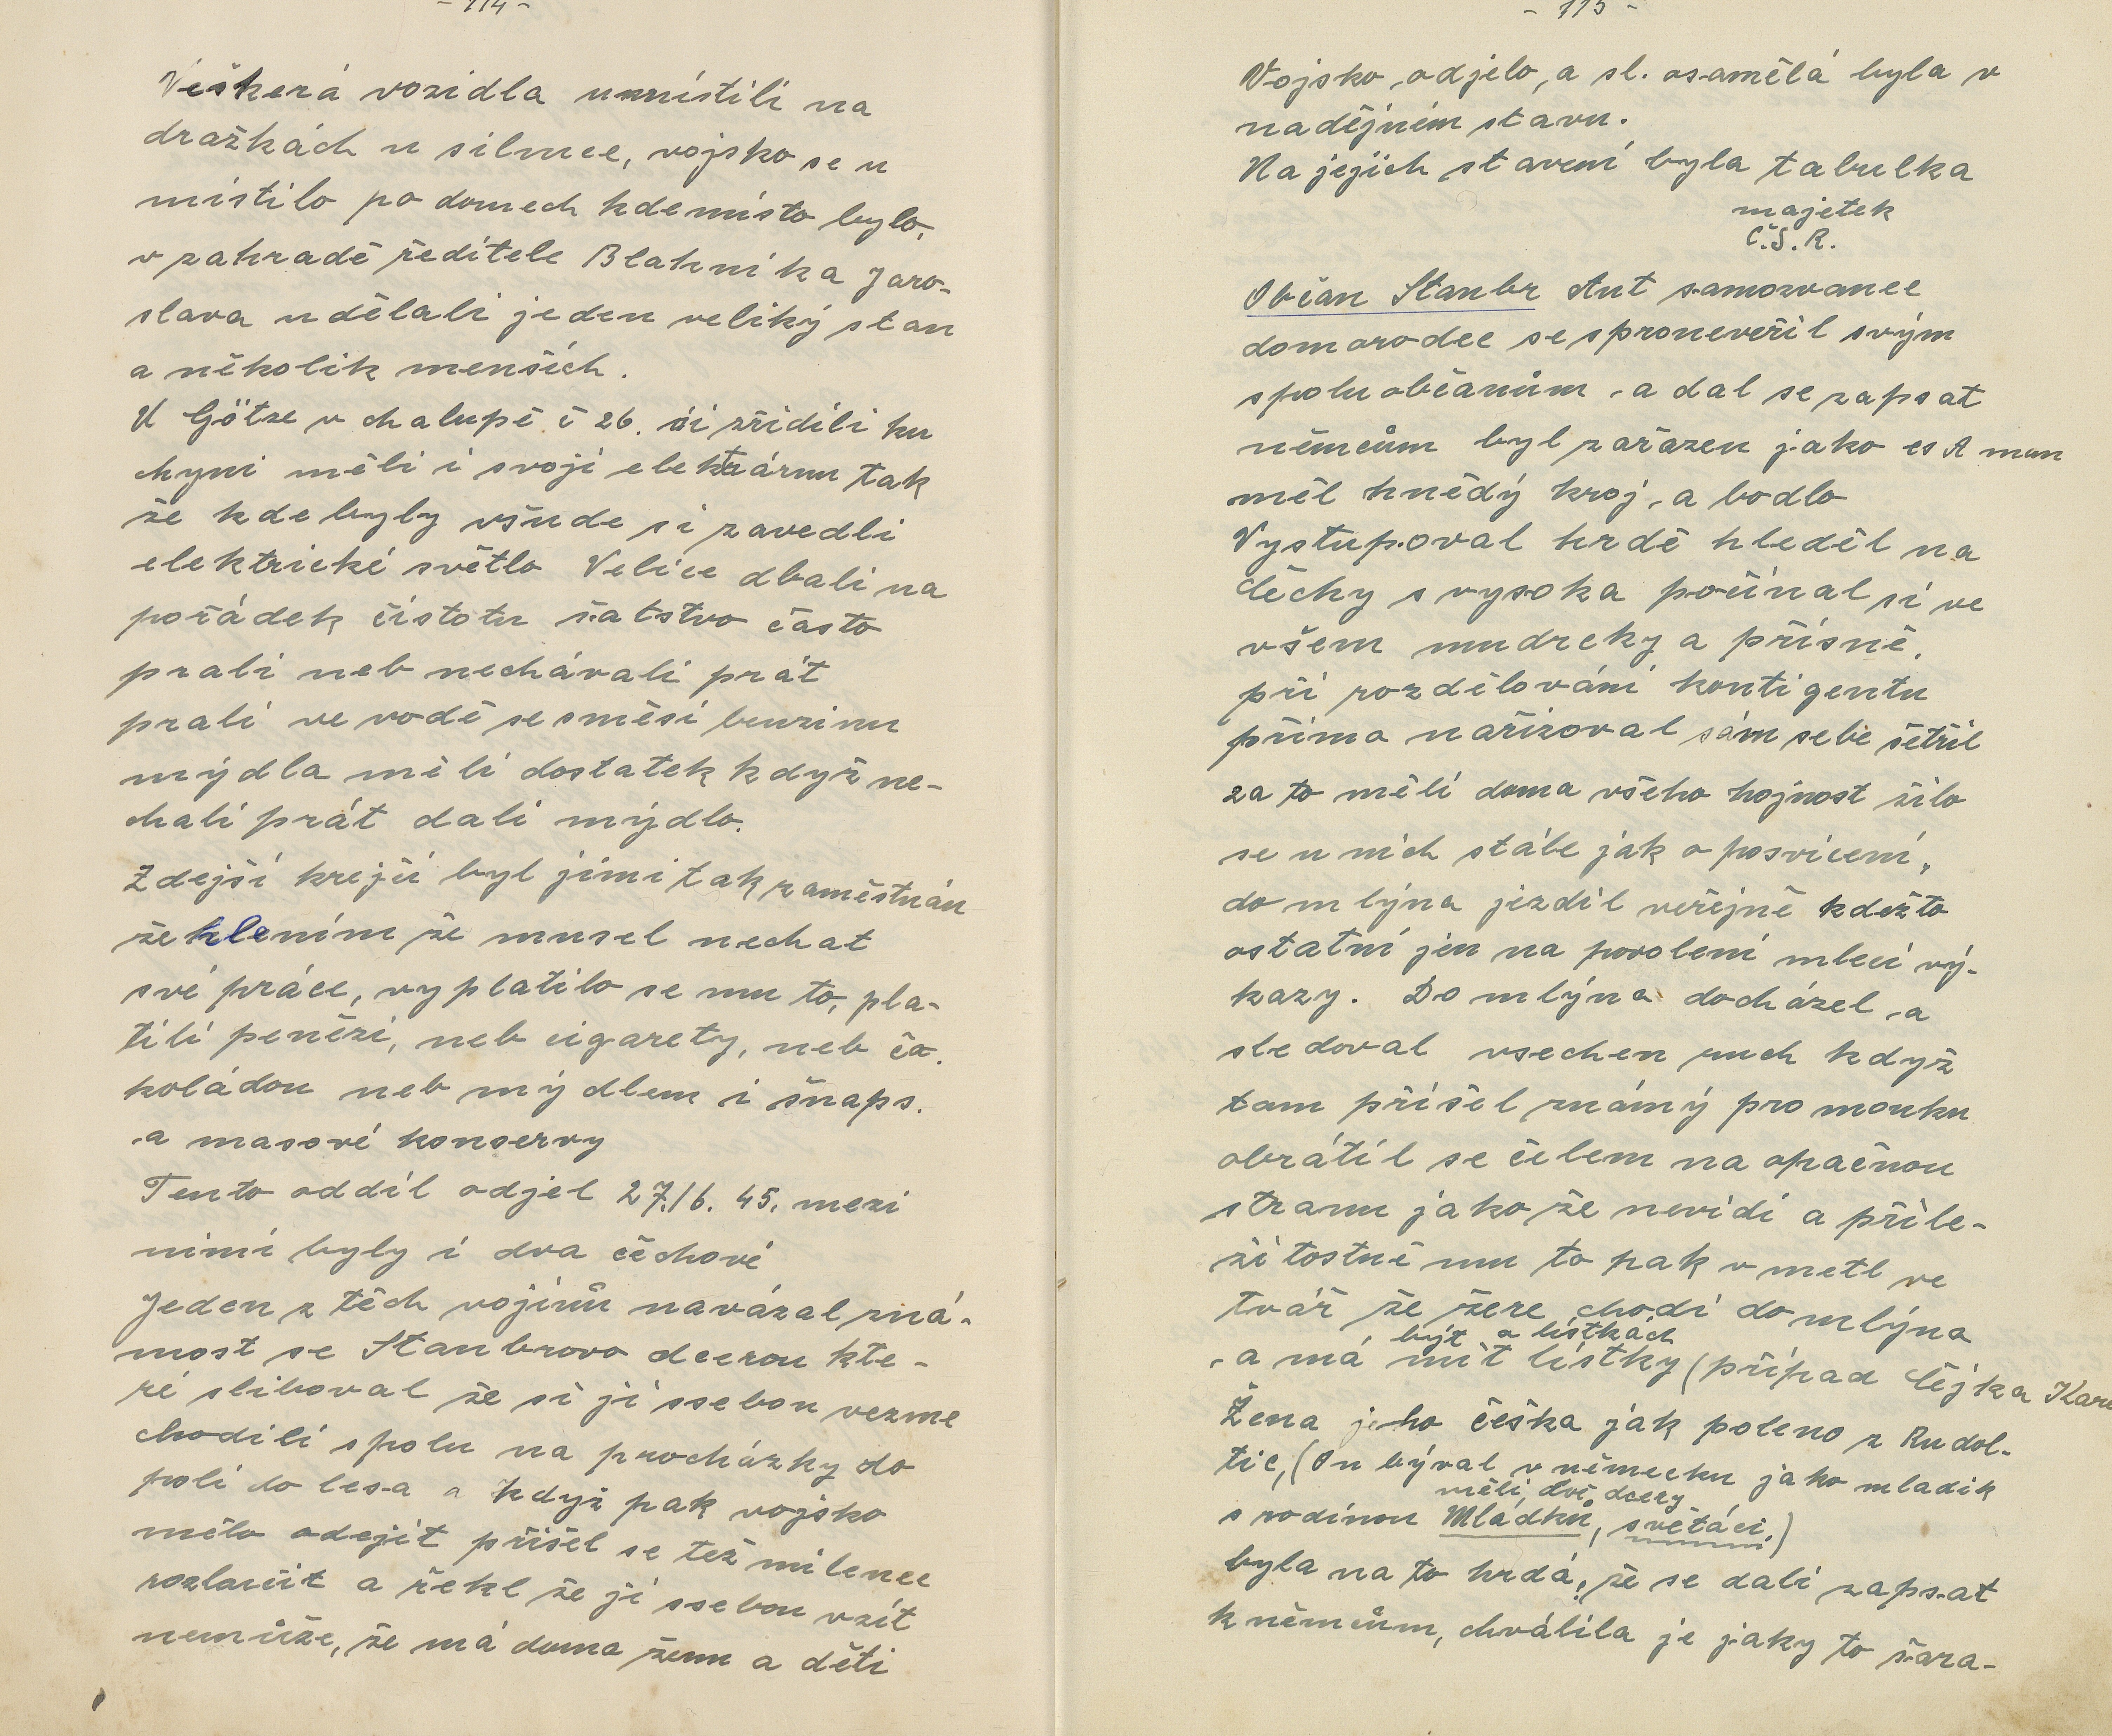 - 114 -
Veškerá vozidla umístili na
dražkách u silnice, vojsko se u
místilo po domech kde místo bylo,
v zahradě ředitele Blahníka Jaro-
slava udělali jeden veliký stan
a několik menších.
U Götze v chalupě č 26. si zřídili ku
chyni měli i svoji elektrárnu tak
že kde byly všude si zavedli
elektrické světlo Velice dbali na
pořádek čistotu šatstvo často
prali neb nechávali prát
prali ve vodě se směsí benzinu
mýdla měli dostatek když ne-
chali prát dali mýdlo.
Zdejší krejčí byl jimi tak zaměstnán
žehlením že musel nechat
své práce, vyplatilo se mu to, pla-
tili penězi, neb cigarety, neb čo.
koládou neb mýdlem i šnaps.
a masové konservy
Tento oddíl odjel 27./6. 45. mezi
nimi byly i dva čechové
Jeden z těch vojínů navázal zná-
most se Stanbrovo dcerou kte-
ré sliboval že si jí ssebou vezme
chodili spolu na procházky do
polí do lesa a když pak vojsko
mělo odejít přišel se též milenec
rozloučit a řekl že jí ssebou vzít
nemůže, že má doma ženu a děti
- 115 -
Vojsko odjelo, a sl. osamělá byla v
nadějném stavu.
Na jejich stavení byla tabulka
majetek
Č.S.R.
Občan Stanbr Ant samozvanec
domorodec se sproneveřil svým
spoluobčanům a dal se zapsat
němcům byl zařazen jako es A man
měl hnědý kroj, a bodlo
Vystupoval hrdě hleděl na
Čechy s vysoka počínal si ve
všem mudrcky a přísně,
při rozdělování kontigentu
přímo nařizoval sám sebe šetřil
za to měli doma všeho hojnost žilo
se u nich stále jak o posvícení,
do mlýna jezdil veřejně kdežto
ostatní jen na povolení mlecí vý-
kazy. Do mlýna docházel a
sledoval vsechen ruch když
tam přišel známý pro mouku
obrátil se čelem na opačnou
stranu jako že nevidí a příle-
žitostně mu to pak v metl ve
tvář že žere chodí do mlýna
být o lístkách
a má mít lístky (případ Čejka Kare
Žena jeho češka jak poleno z Rudol-
tic, (On býval v německu jako mladík
měli dvě dcery
s rodinou Mládků, světáci.)
byla na to hrdá, že se dali zapsat
k němcům, chválila je jaky to šara-